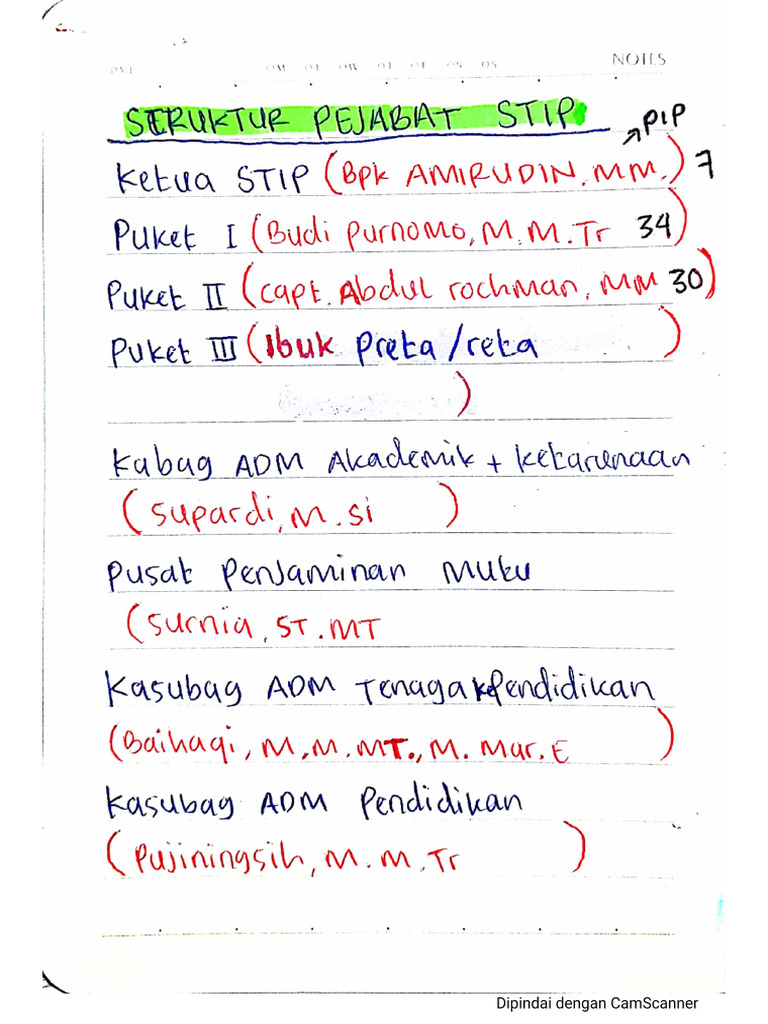 NOTES
STRUKTUR PEJABAT STIP
↗ PIP
Ketua STIP (Bpk AMIRUDIN.MM.) 7
Puket I (Budi Purnomo, M.M.Tr 34)
Puket II (capt. Abdul rochman, MM 30)
Puket III (Ibuk Preta/reta )
)
Kabag ADM Akademik + ketarunaan
(Supardi, M.si )
Pusat Penjaminan Mutu
(Surnia, ST.MT
Kasubag ADM Tenaga kePendidikan
(Baihaqi, M.M.MT., M.Mar.E )
Kasubag ADM Pendidikan
(Pujiningsih, M.M.Tr )
Dipindai dengan CamScanner